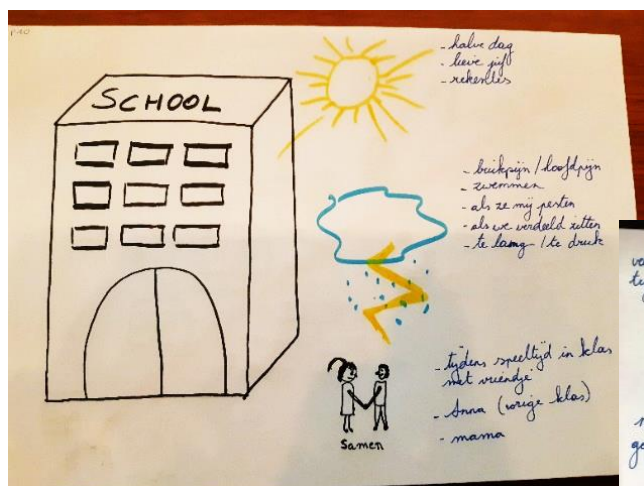 P10
SCHOOL
- halve dag
- lieve juf
- rekenles
- buikpijn / hoofdpijn
- zwemmen
- als ze mij pesten
- als we verdeeld zitten
- te lang / te druk
- tijdens speeltijd in klas
met vriendje
- Anna (vorige klas)
- mama
Samen